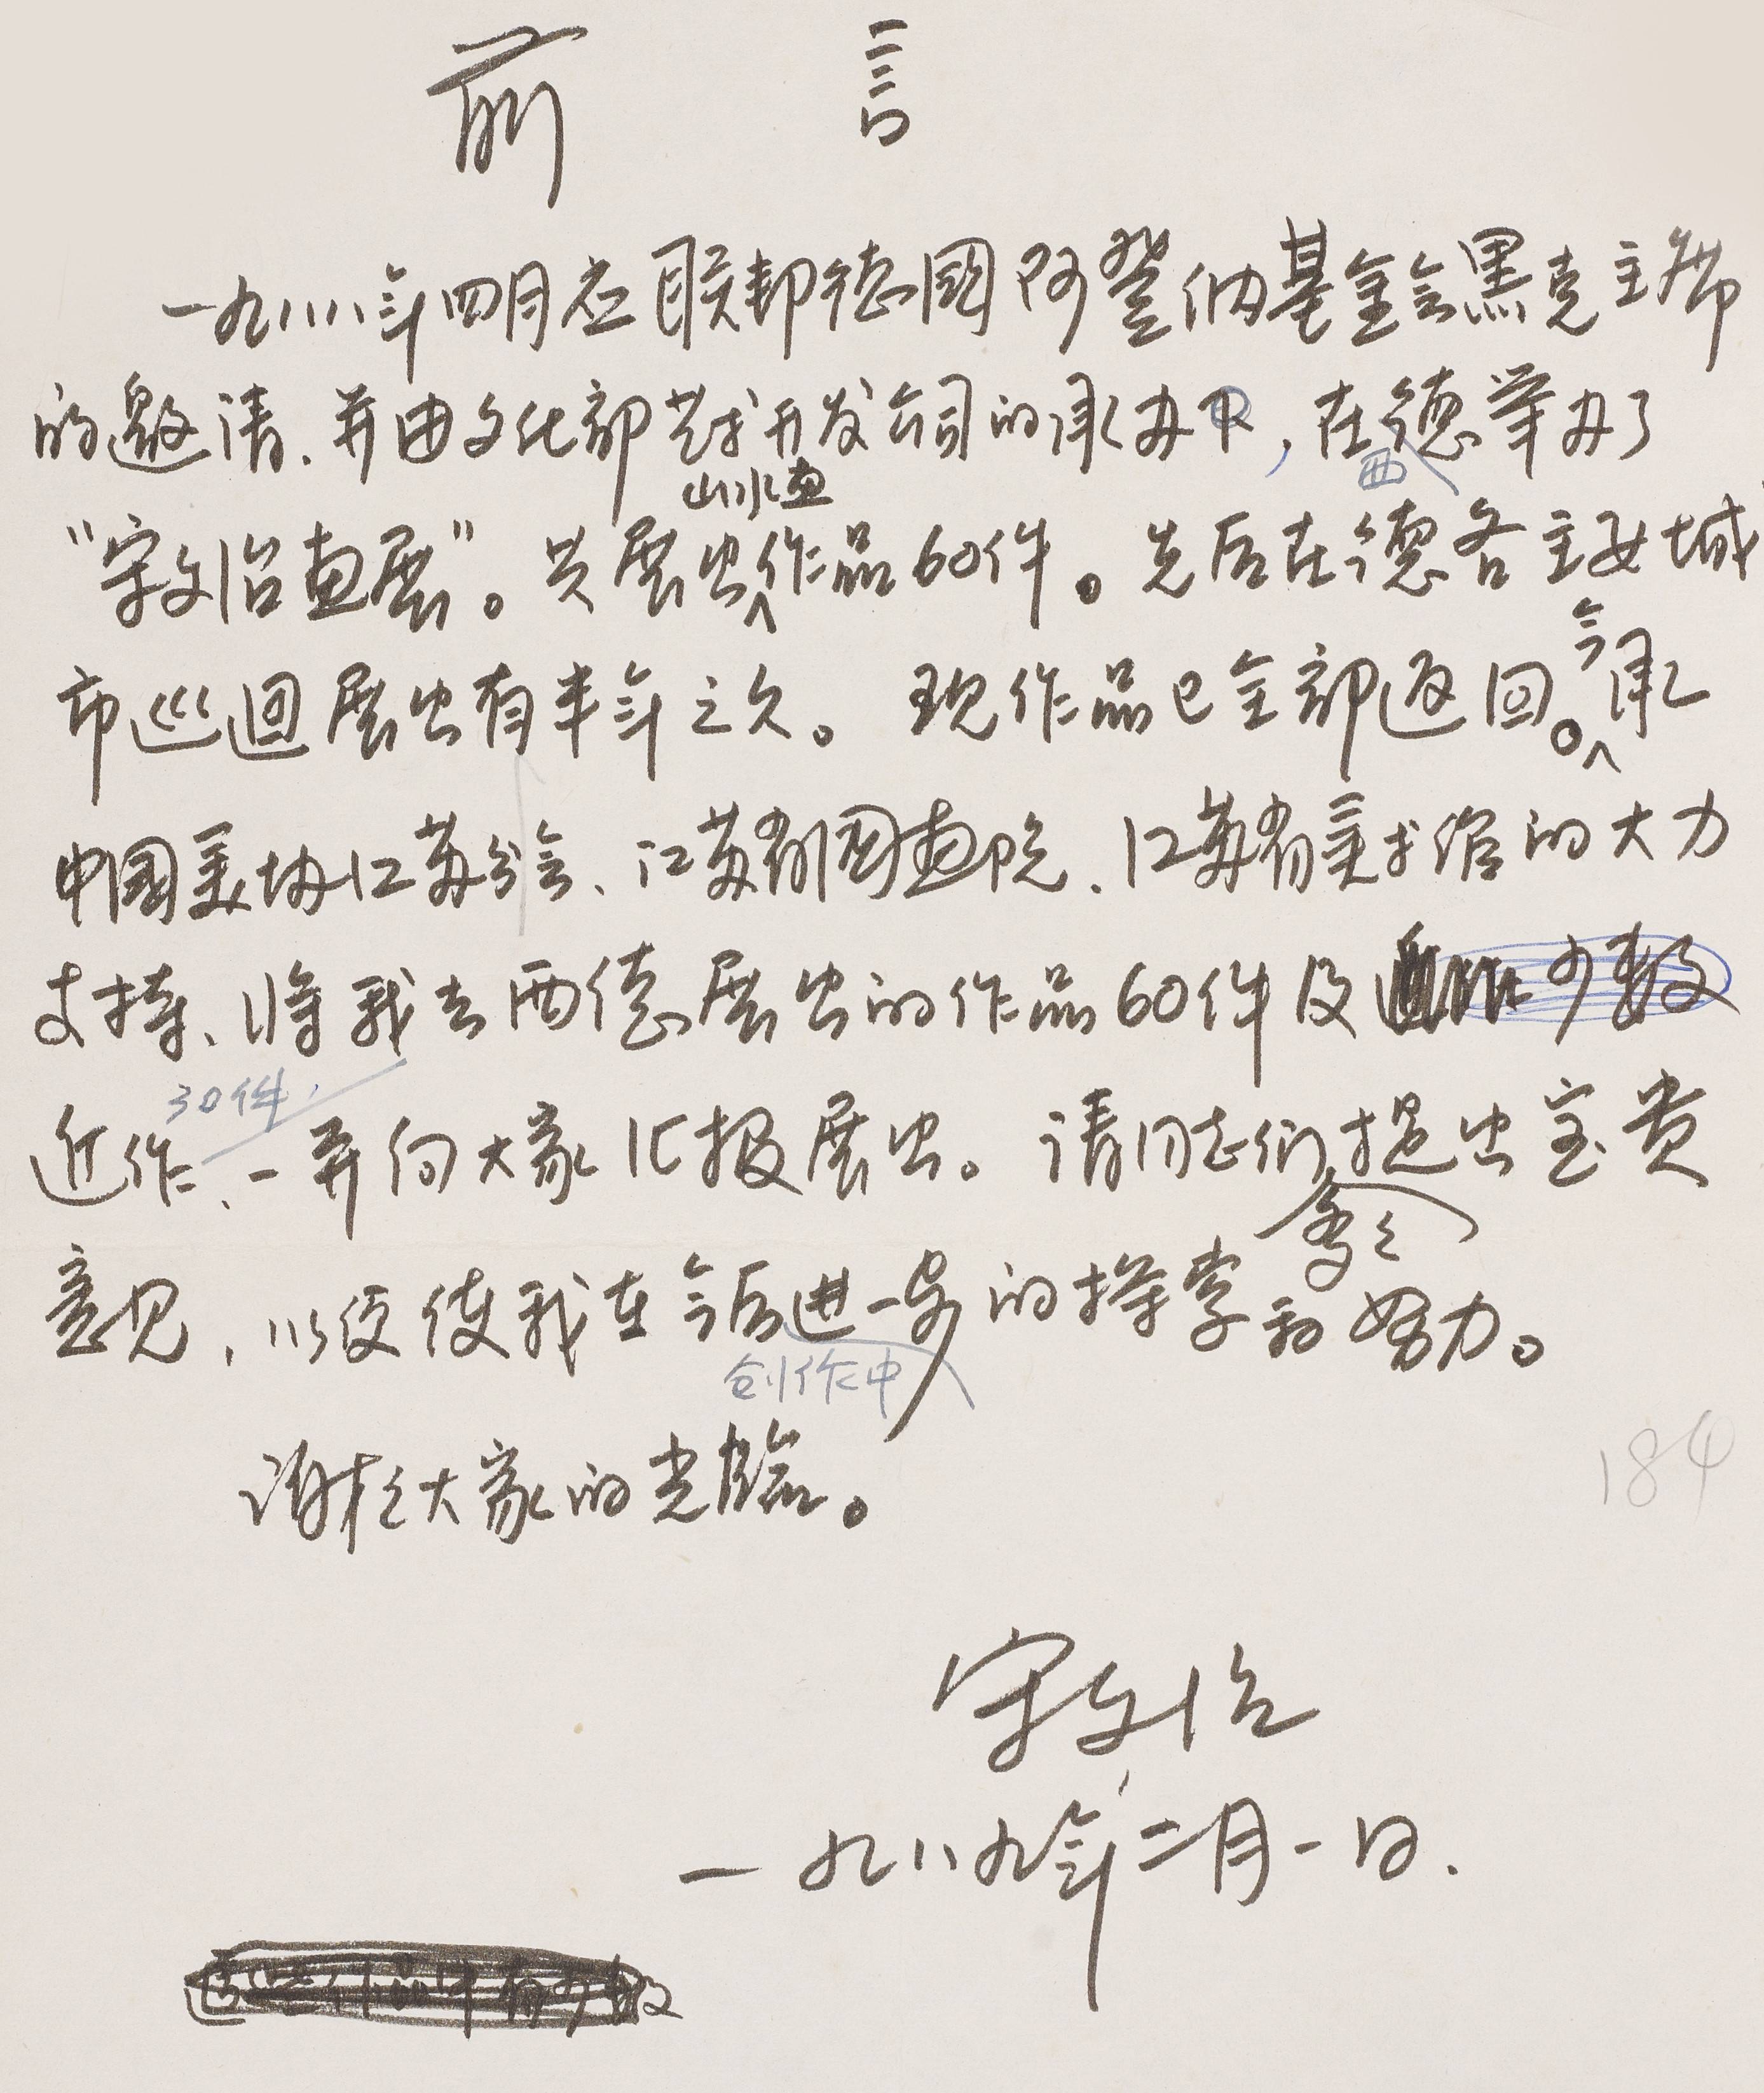 前言
一九八八年四月应联邦德國阿登纳基金会黑克主席
的邀请.并由文化部艺术开发公司的承办下,在西德举办了
山水画
"宋文治画展"。共展出作品60件。先后在德各主要城
市巡迴展出有半年之久。现作品已全部返回。今承
中国美协江苏分会、江苏省国画院、江苏省美术馆的大力
支持、将我去西德展出的作品60件及少数
30件
近作、一并向大家汇报展出。请同志们多多提出宝贵
意见,以便使我在今后创作中进一步的探索和努力。
谢谢大家的光临。
184
宋文治
一九八九年二月一日.